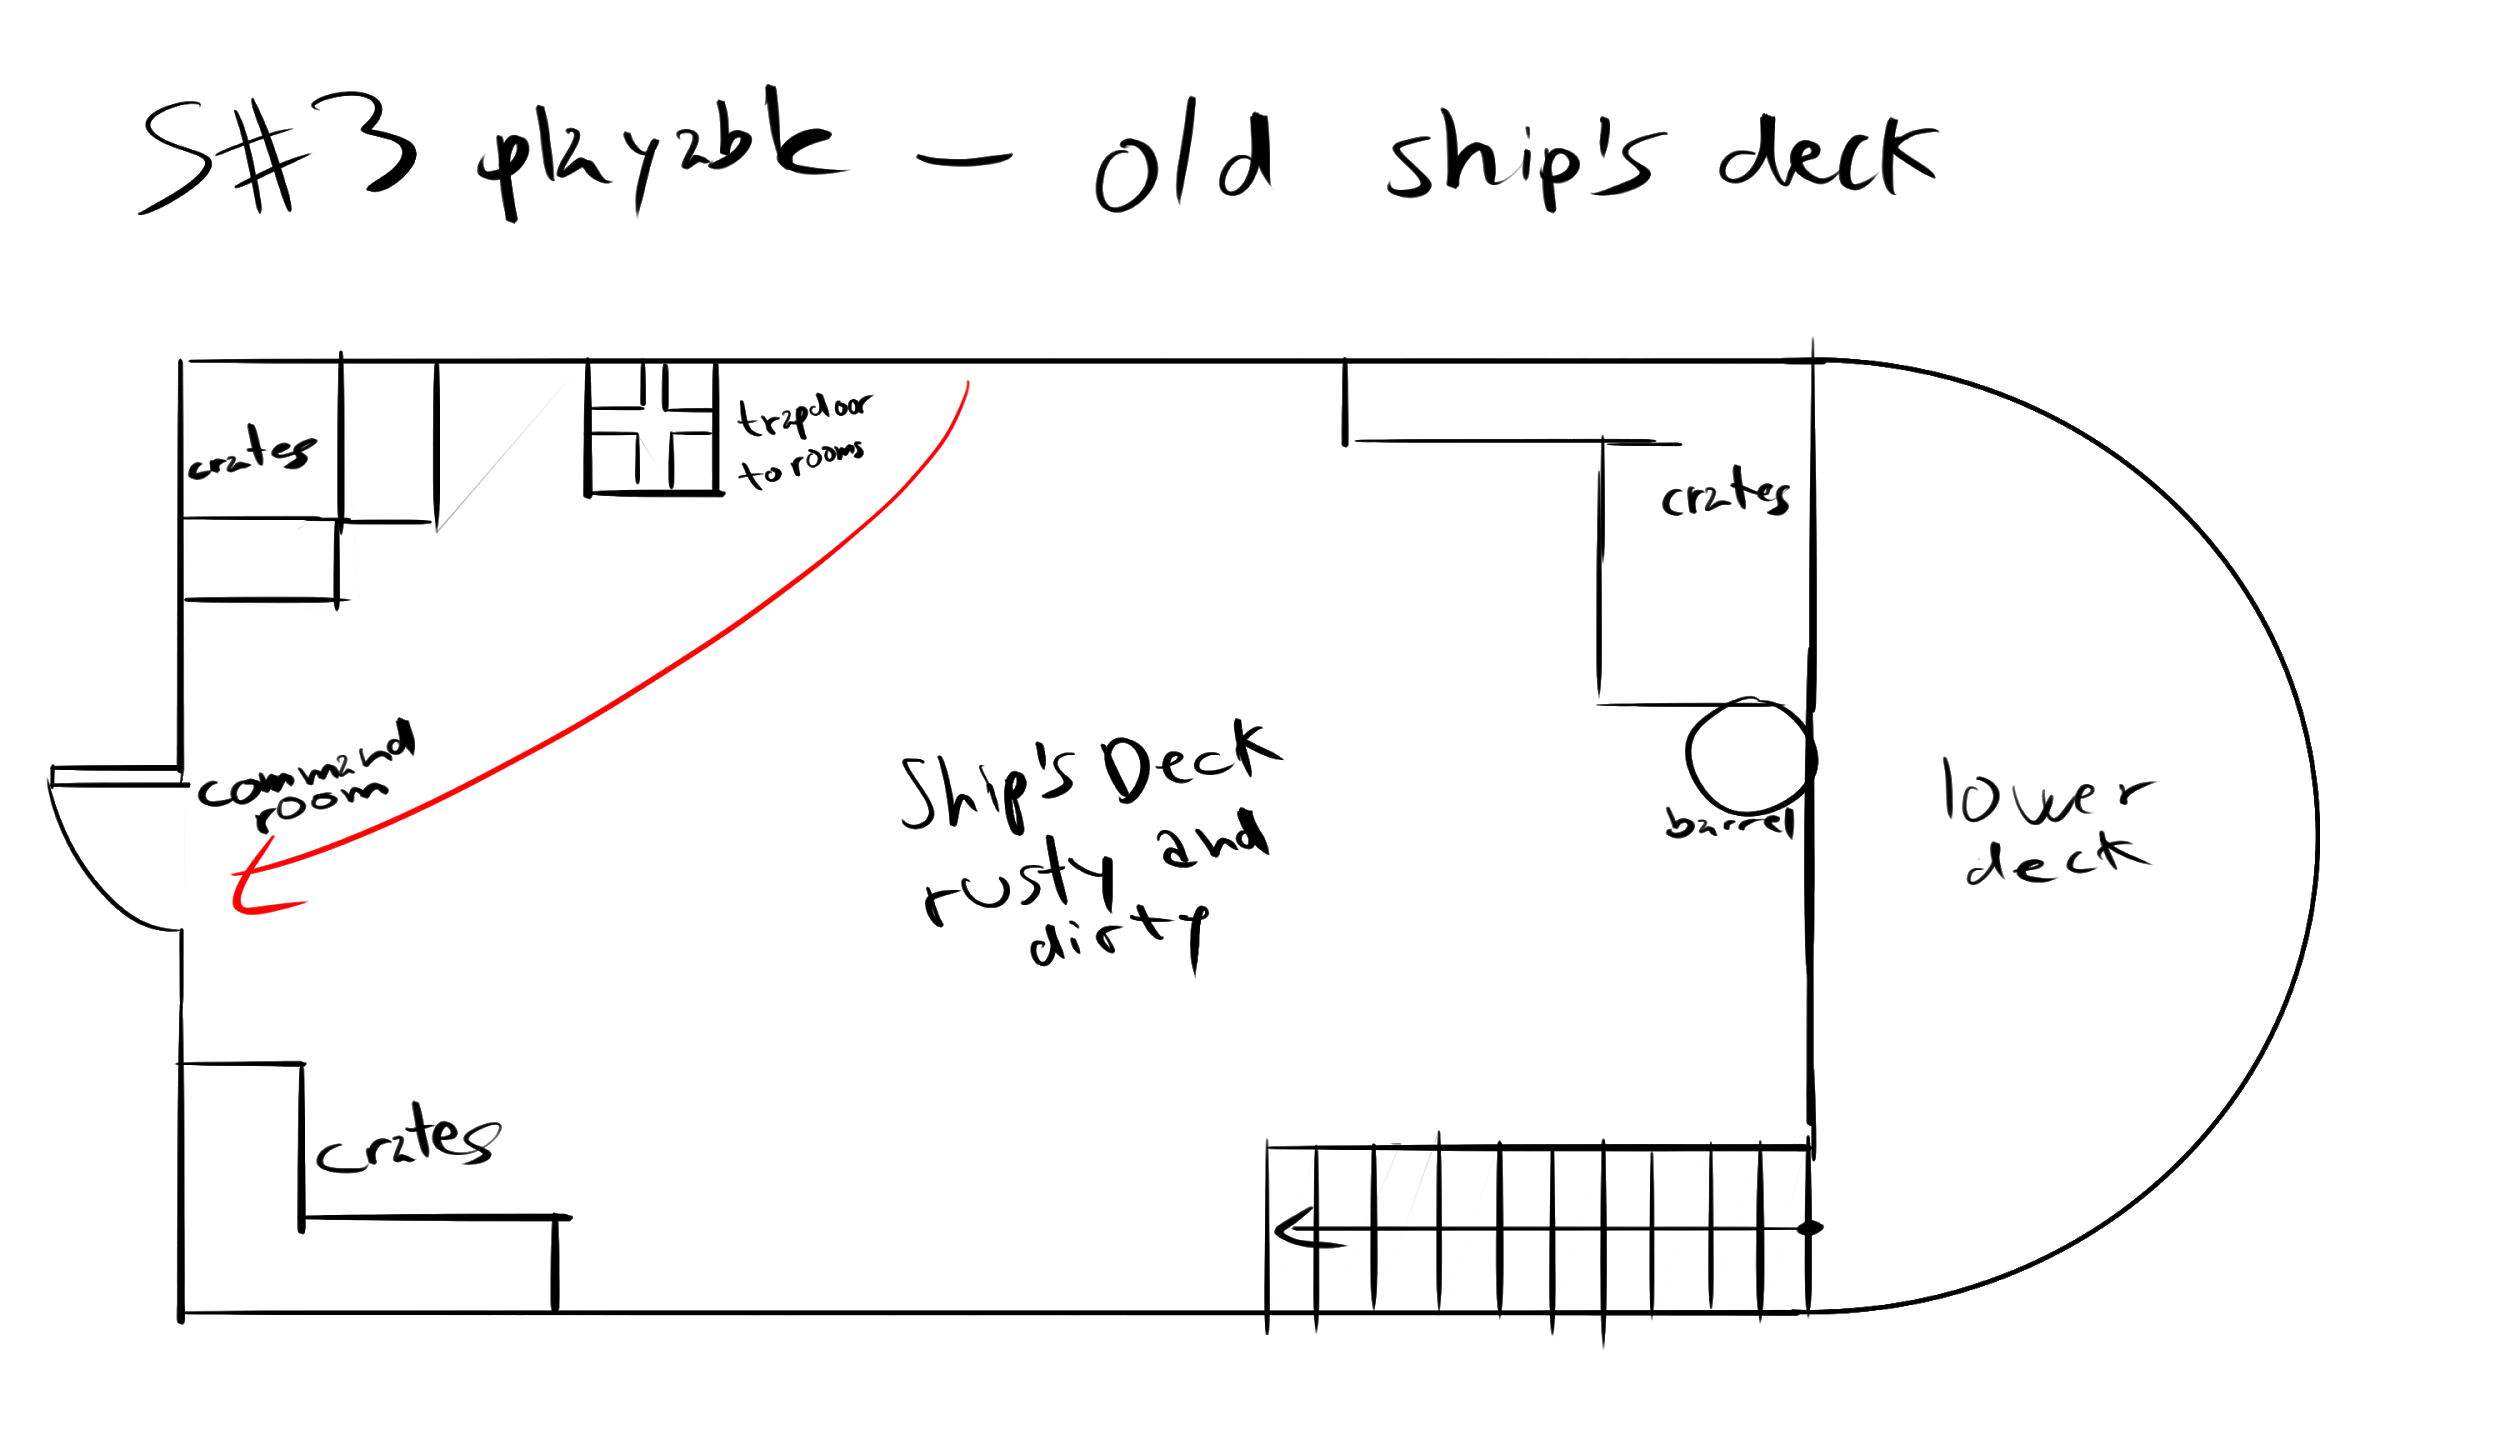 S#3 playblk – old ship's deck
crates
trapdoor
to rooms
crates
command
room
Ship's Deck
rusty and
dirty
barrel
lower
deck
crates